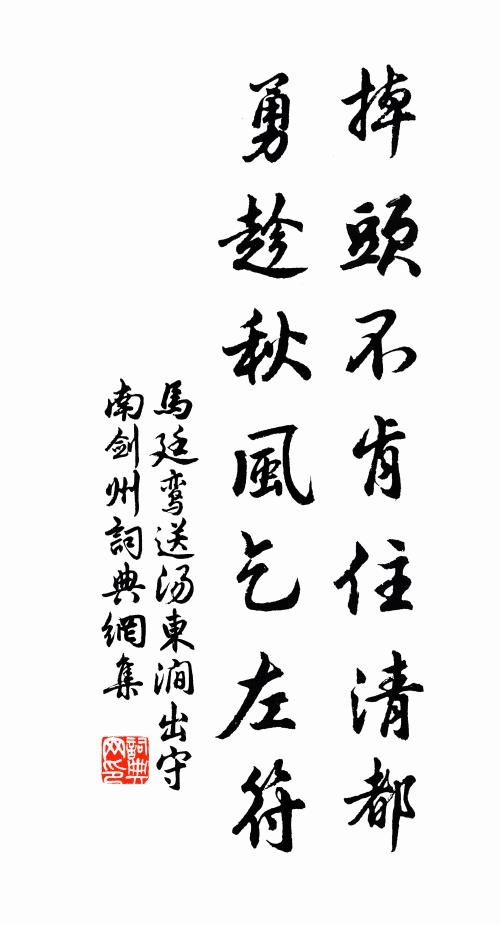 掉頭不肯住清都
勇趁秋風乞左符
馬廷鸾送汤東澗出守
南剑州詞典網集
詞典
网印